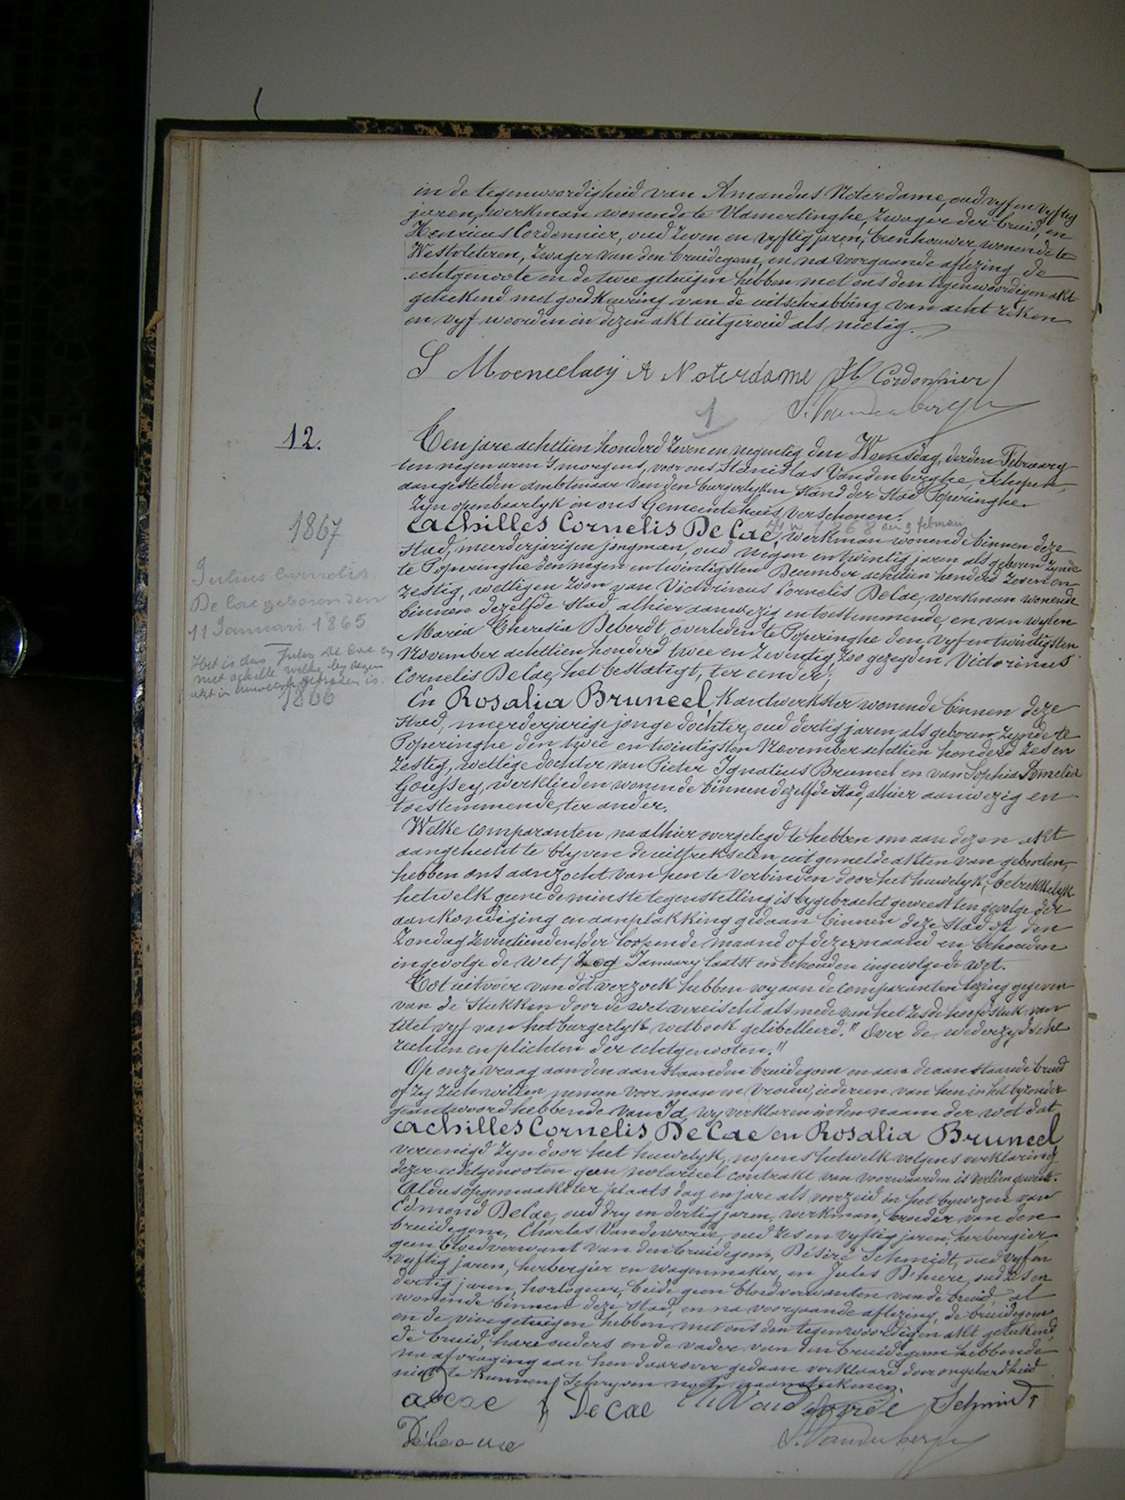 in de tegenwoordigheid van Amandus Noterdame, oud vyf en vyftig
jaren, werkman wonende te Vlamertinghe, zwager der bruid, en
Henricus Cordonnier, oud zeven en vyftig jaren, brouwer, wonende te
Westvleteren, zwager van den bruidegom, en na voorgaande aflezing de
echtgenoote en de twee getuigen hebben met ons den tegenwoordigen akt
geteekend met goedkeuring van de uitschrabbing van acht reken
en vyf woorden in dezen akt uitgeroeid als nietig.
S Moeneclaey A Noterdame H Cordonnier
S. Vandenberghe
1
12.
Ten jare achttien honderd zeven en negentig den Woensdag, derden February
ten negen uren 's morgens, voor ons Stanislas Vandenberghe, Schepen,
aangestelden ambtenaar van den burgerlyken stand der Stad Poperinghe
zyn openbaarlyk in ons Gemeentehuis verschenen:
Achilles Cornelis De Cae, werkman wonende binnen deze
stad, meerderjarigen jongman, oud negen en twintig jaren als geboren zynde
te Poperinghe den negen en twintigsten December achttien honderd zeven en
zestig, wettigen zoon van Victorinus Cornelis De Cae, werkman wonende
binnen dezelfde stad, alhier aanwezig en toestemmende, en van wylen
Maria Theresia Deberdt, overleden te Poperinghe den vyf en twintigsten
November achttien honderd twee en zeventig, zoo gezegden Victorinus
Cornelis De Cae, het bestatigt, ter eender,
1867
Julius Cornelis
De Cae geboren den
11 Januari 1865
Het is dus Jules De Cae en
niet Achille welke by dezen
akt in huwelyk getreden is
1866
En Rosalia Bruneel, kantwerkster wonende binnen deze
stad, meerderjarige jonge dochter, oud dertig jaren als geboren zynde te
Poperinghe den twee en twintigsten November achttien honderd zes en
zestig, wettige dochter van Pieter Ignatius Bruneel en van Sophia Amelia
Goussey, werklieden wonende binnen dezelfde stad, alhier aanwezig en
toestemmende, ter ander.
Welke comparanten, na alhier overgelegd te hebben om aan dezen akt
aangehecht te blyven de uittrekselen uit gemelde akten van geboorten,
hebben ons aanzocht van hen te verbinden door het huwelyk, betrekkelyk
hetwelk geene de minste tegenstelling is bygebracht geweest ten gevolge der
aankondiging en aanplakking gedaan binnen deze Stad op den
Zondag zeventienden der loopende maand of dezer maand en behouden
ingevolge de wet January laatst en behouden ingevolge de wet.
Tot uitvoer van dit verzoek hebben wy aan de comparanten lezing gegeven
van de stukken door de wet vereischt als mede van het zesde hoofdstuk van
titel vyf van het burgerlyk wetboek getitelleerd: "Over de wederzydsche
rechten en plichten der echtgenooten."
Op onze vraag aan den aanstaanden bruidegom en aan de aanstaande bruid
of zy zich willen nemen voor man en vrouw, iedereen van hen in het byzonder
geantwoord hebbende van Ja, wy verklaren in den naam der wet dat
Achilles Cornelis De Cae en Rosalia Bruneel
vereenigd zyn door het huwelyk, nopens hetwelk volgens verklaring
dezer echtgenooten geen notarieel contrakt van voorwaarden is verleden geweest.
Aldus opgemaakt ter plaats dag en jare als voorzeid in het bywezen van
Edmond De Cae, oud dry en dertig jaren, werkman, broeder van den
bruidegom, Charles Vandevoorde, oud zes en vyftig jaren, herbergier
geen bloedverwant van den bruidegom, Désiré Schmidt, oud vyf en
vyftig jaren, herbergier en wagenmaker, en Jules D'heere, oud zes en
dertig jaren, horlogeur, beide geen bloedverwanten van de bruid al
wonende binnen deze stad, en na voorgaande aflezing, de bruidegom
en de vier getuigen hebben met ons den tegenwoordigen akt geteekend
de bruid, hare ouders en de vader van den bruidegom hebbende
na afvraging aan hen daarover gedaan verklaard door ongeleerdheid
niet te kunnen schryven noch naamteekenen.
De Cae De Cae Schmidt
S. Vandenberghe